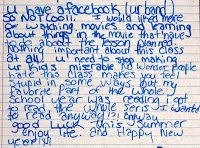 u have a facebook (ur band)
So NOT cool. I would liked more
watching movies and learning
about things in the movie that have
to do about the lesson planned.
Nothing important about this class
at all! u need to stop making
ur kids miserable no wonder people
hate this class makes you feel
stupid in some ways but my
favorite part of the whole
school year was reading I got
to read the whole series I wanted
to read anyway!?! Enjoy
Good luck this summer
enjoy life. and Happy New
year!!